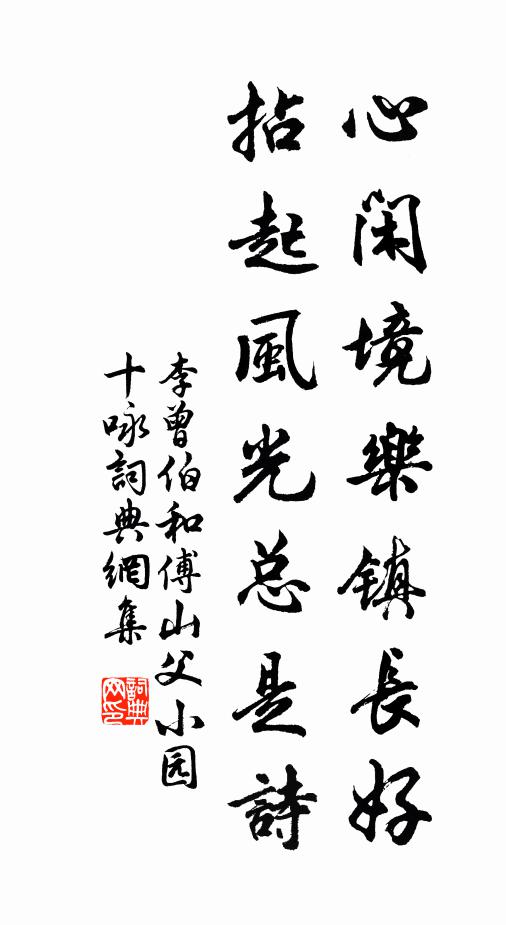 心闲境樂镇長好
拈起風光总是詩
李曾伯和傅山父小园
十咏詞典網集
詞典
网印